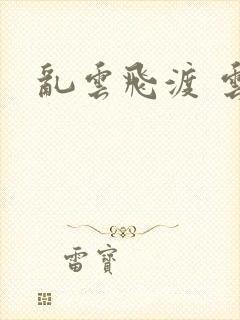 亂雲飛渡 雲
雷寶